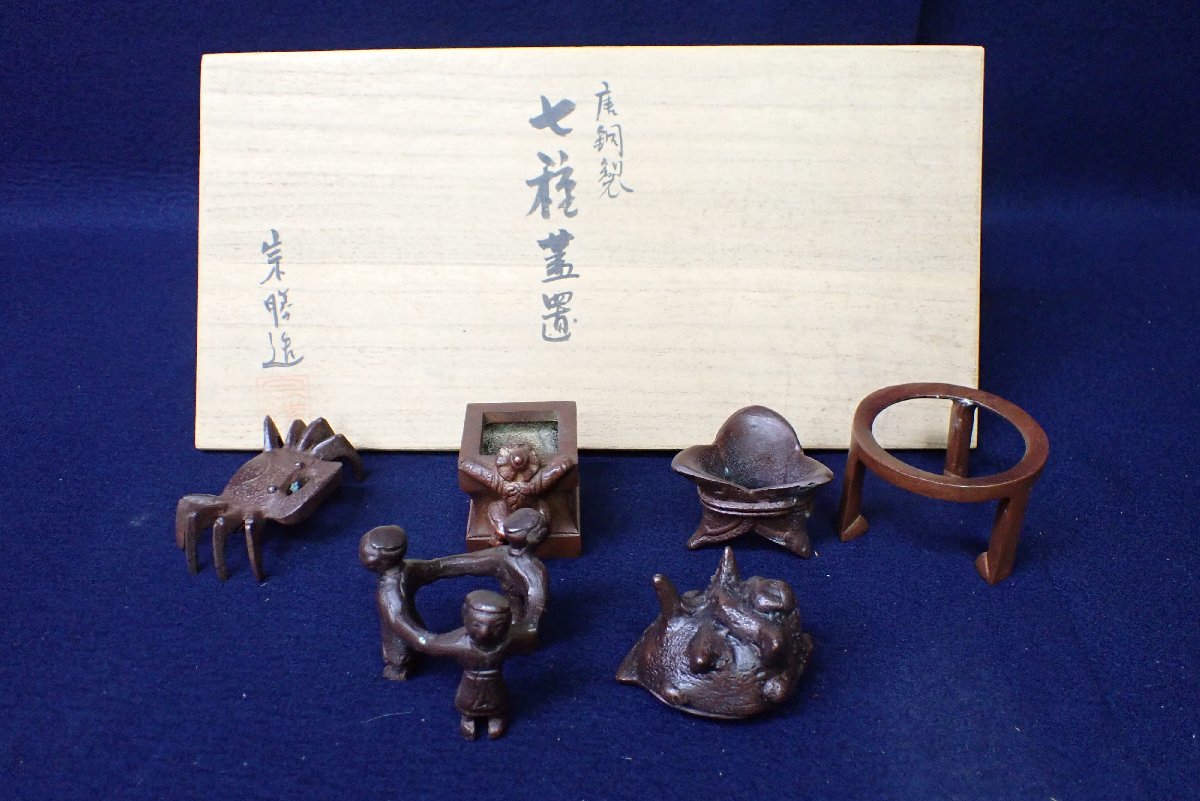 唐銅製
七種蓋置
崇勝造